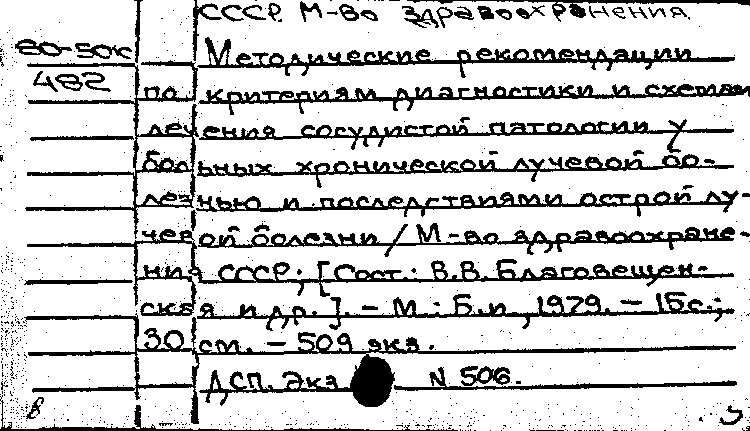 СССР. М-во здравоохранения
80-50к Методические рекомендации
482 по критериям диагностики и схемам
лечения сосудистой патологии у
больных хронической лучевой бо-
лезнью и последствиями острой лу-
чевой болезни / М-во здравоохране-
ния СССР; [Сост.: В.В. Благовещен-
ская и др.]. - М.: Б.и, 1979. - 15с.;
30 см. - 509 экз.
ДСП. Экз N 506.
в